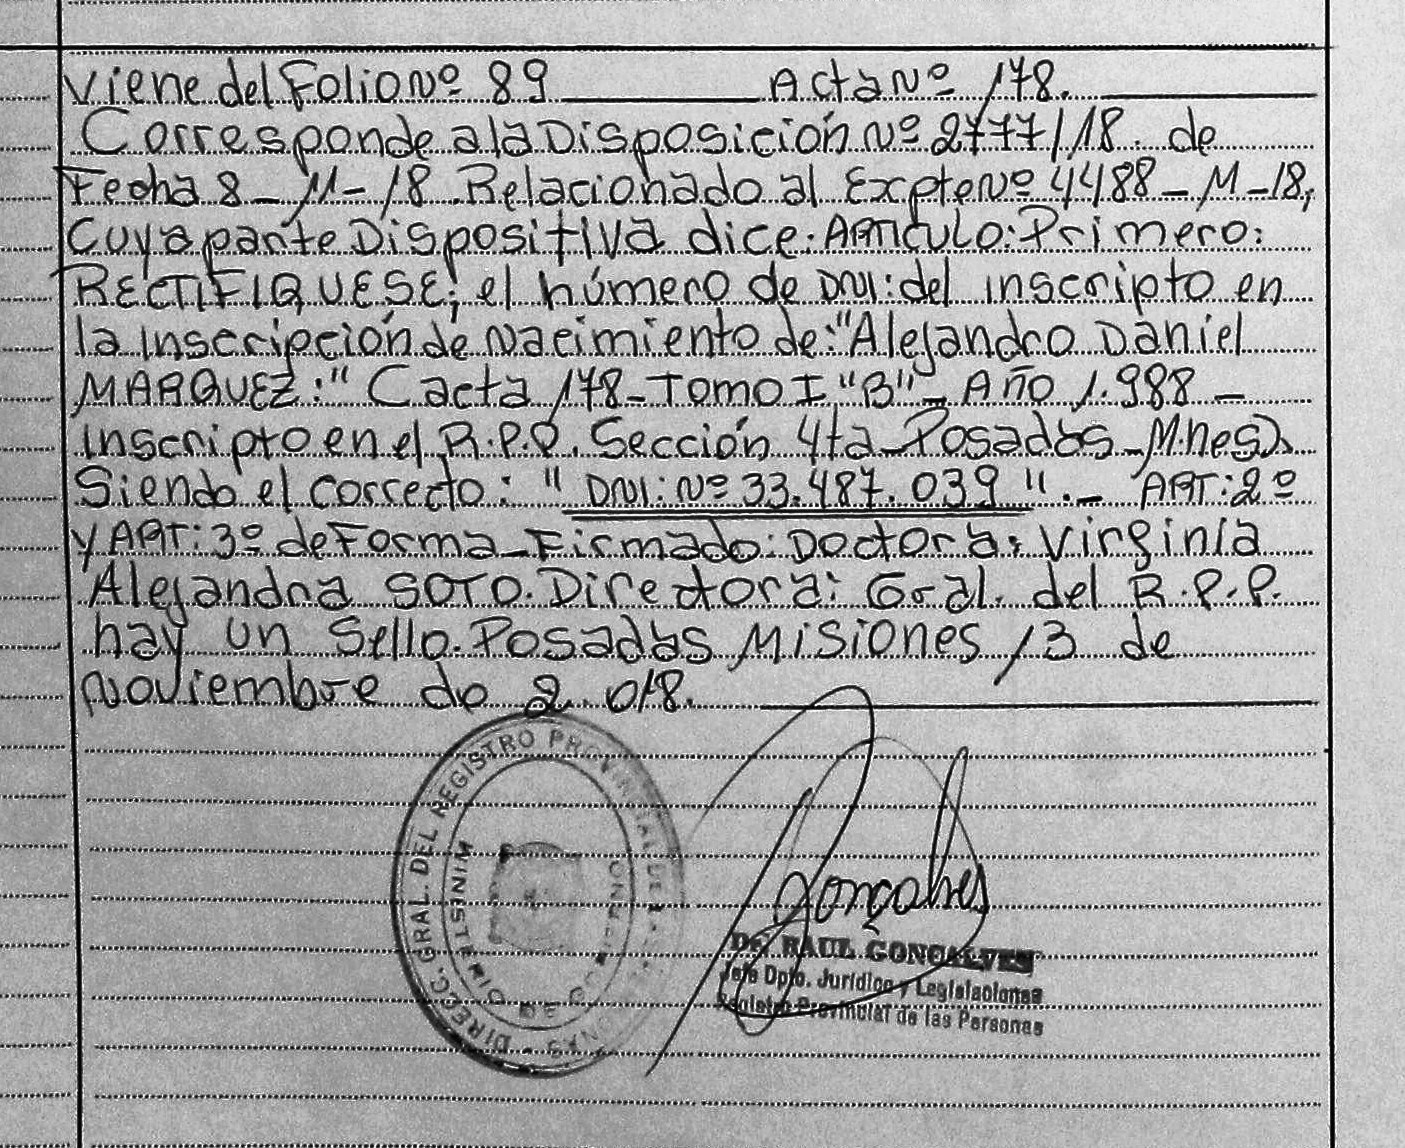 Viene del Folio Nº 89 Acta Nº 178.
Corresponde a la Disposición Nº 2777/18. de
Fecha 8-11-18. Relacionado al Expte Nº 4488-M-18,
Cuya parte Dispositiva dice: ARTICULO: Primero:
RECTIFIQUESE; el número de DNI: del inscripto en
la inscripción de Nacimiento de: "Alejandro Daniel
MARQUEZ:" Cacta 178-Tomo I "B"- Año 1.988-
inscripto en el R.P.P. Sección 4ta-Posadas-Mnes).
Siendo el correcto: "DNI: Nº 33.487.039".- ART: 2º
y ART: 3º de Forma-Firmado: Doctora: Virginia
Alejandra SOTO. Directora: Gral. del R.P.P.
hay un Sello. Posadas Misiones 13 de
Noviembre de 2.018.
DIRECC. GRAL. DEL REGISTRO PROVINCIAL DE
MINIST
Gonçalves
Dr. RAUL GONCALVES
Jefe Dpto. Jurídico y Legislaciones
Registro Provincial de las Personas